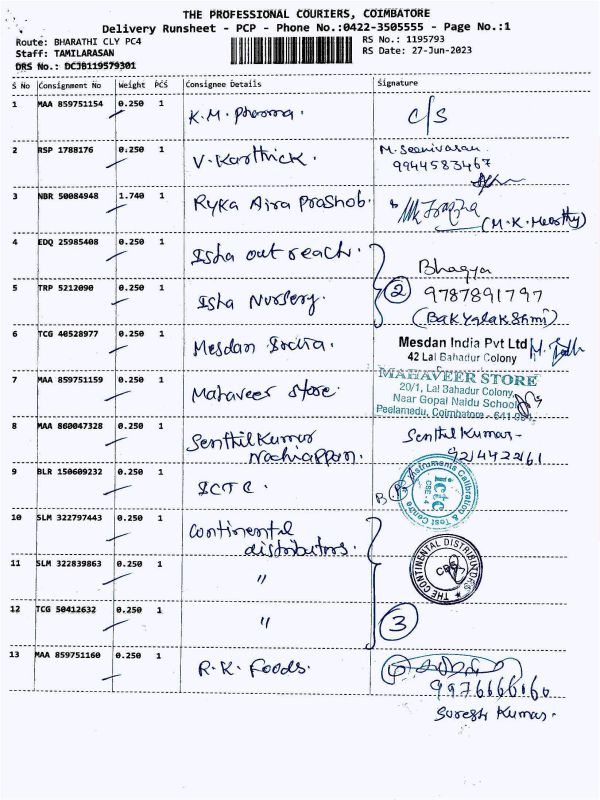 THE PROFESSIONAL COURIERS, COIMBATORE
Delivery Runsheet - PCP - Phone No.:0422-3505555 - Page No.:1
Route: BHARATHI CLY PC4
RS No.: 1195793
Staff: TAMILARASAN
RS Date: 27-Jun-2023
DRS No.: DCJB119579301
S No Consignment No Weight PCS Consignee Details Signature
1 MAA 859751154 0.250 1 K.M. Pharma. C/S
2 RSP 1788176 0.250 1 V. Karthick. M. Seenivasan
9944583467
3 NBR 50084948 1.740 1 Ryka Aira Prashob. (M.K. Moorthy)
4 EDQ 25985408 0.250 1 Isha out reach. Bhagya
5 TRP 5212090 0.250 1 Isha Nursery. 2 9787891797
(Bakyalakshmi)
6 TCG 40528977 0.250 1 Mesdan India. Mesdan India Pvt Ltd
42 Lal Bahadur Colony
7 MAA 859751159 0.250 1 Mahaveer store. MAHAVEER STORE
20/1, Lal Bahadur Colony,
Near Gopal Naidu School
Peelamedu, Coimbatore - 641
8 MAA 860047328 0.250 1 Senthil Kumar
Nachiappan. Senthil Kumar-
9 BLR 150609232 0.250 1 ICTC. Instruments Calibration & Test Centre
ictc
CBE-4
10 SLM 322797443 0.250 1 Continental
distributors. THE CONTINENTAL DISTRIBUTORS
11 SLM 322839863 0.250 1 "
12 TCG 50412632 0.250 1 " 3
13 MAA 859751160 0.250 1 R.K. Foods.
Suresh Kumar.